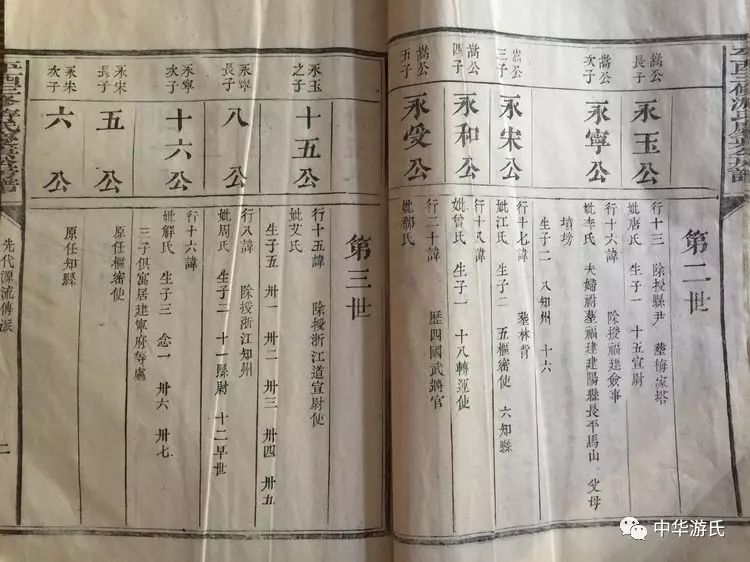 第二世
嵩公長子
永玉公
行十三 除授縣尹 塟梅家塔
妣唐氏 生子一 十五宣尉
嵩公次子
永寧公
行十六諱 除授福建僉事
妣李氏 夫婦祔塟福建建陽縣長平馬山 父母墳塝
生子二 八知州 十六
嵩公三子
永宋公
行十七諱 塟林背
妣江氏 生子二 五樞密使 六知縣
嵩公四子
永和公
行十八諱
妣曾氏 生子一 十八轉運使
嵩公五子
永受公
行二十諱 歷四國武將官
妣鄒氏
第三世
永玉之子
十五公
行十五諱 除授浙江道宣尉使
妣艾氏
生子五 卅一 卅二 卅三 卅四 卅五
永寧長子
八公
行八諱 除授浙江知州
妣周氏 生子二 十一縣尉 十二早世
永寧次子
十六公
行十六諱
妣解氏 生子三 念一 卅六 卅七
三子俱寓居建寧府等處
永宋長子
五公
原任樞密使
永宋次子
六公
原任知縣
先代源流傳派
二
中华游氏